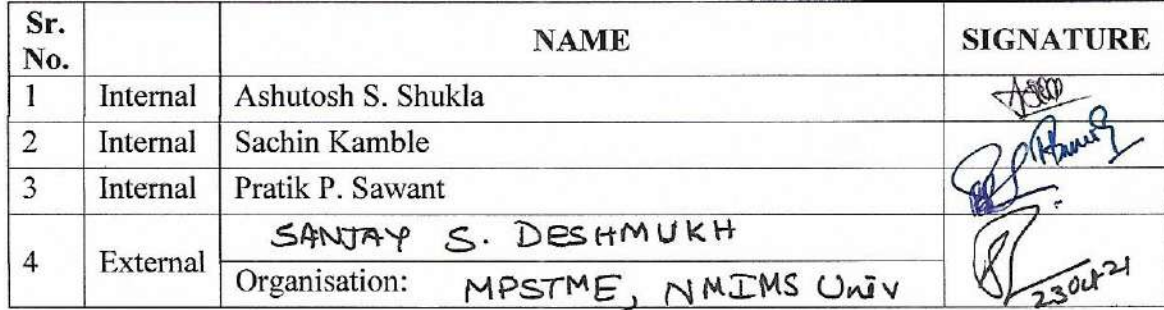 Sr. No. NAME SIGNATURE
1 Internal Ashutosh S. Shukla
2 Internal Sachin Kamble
3 Internal Pratik P. Sawant
4 External SANJAY S. DESHMUKH
Organisation: MPSTME, NMIMS Univ
23 Oct 21